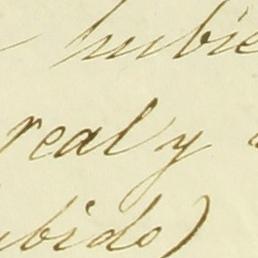 hubie
real y
bido)